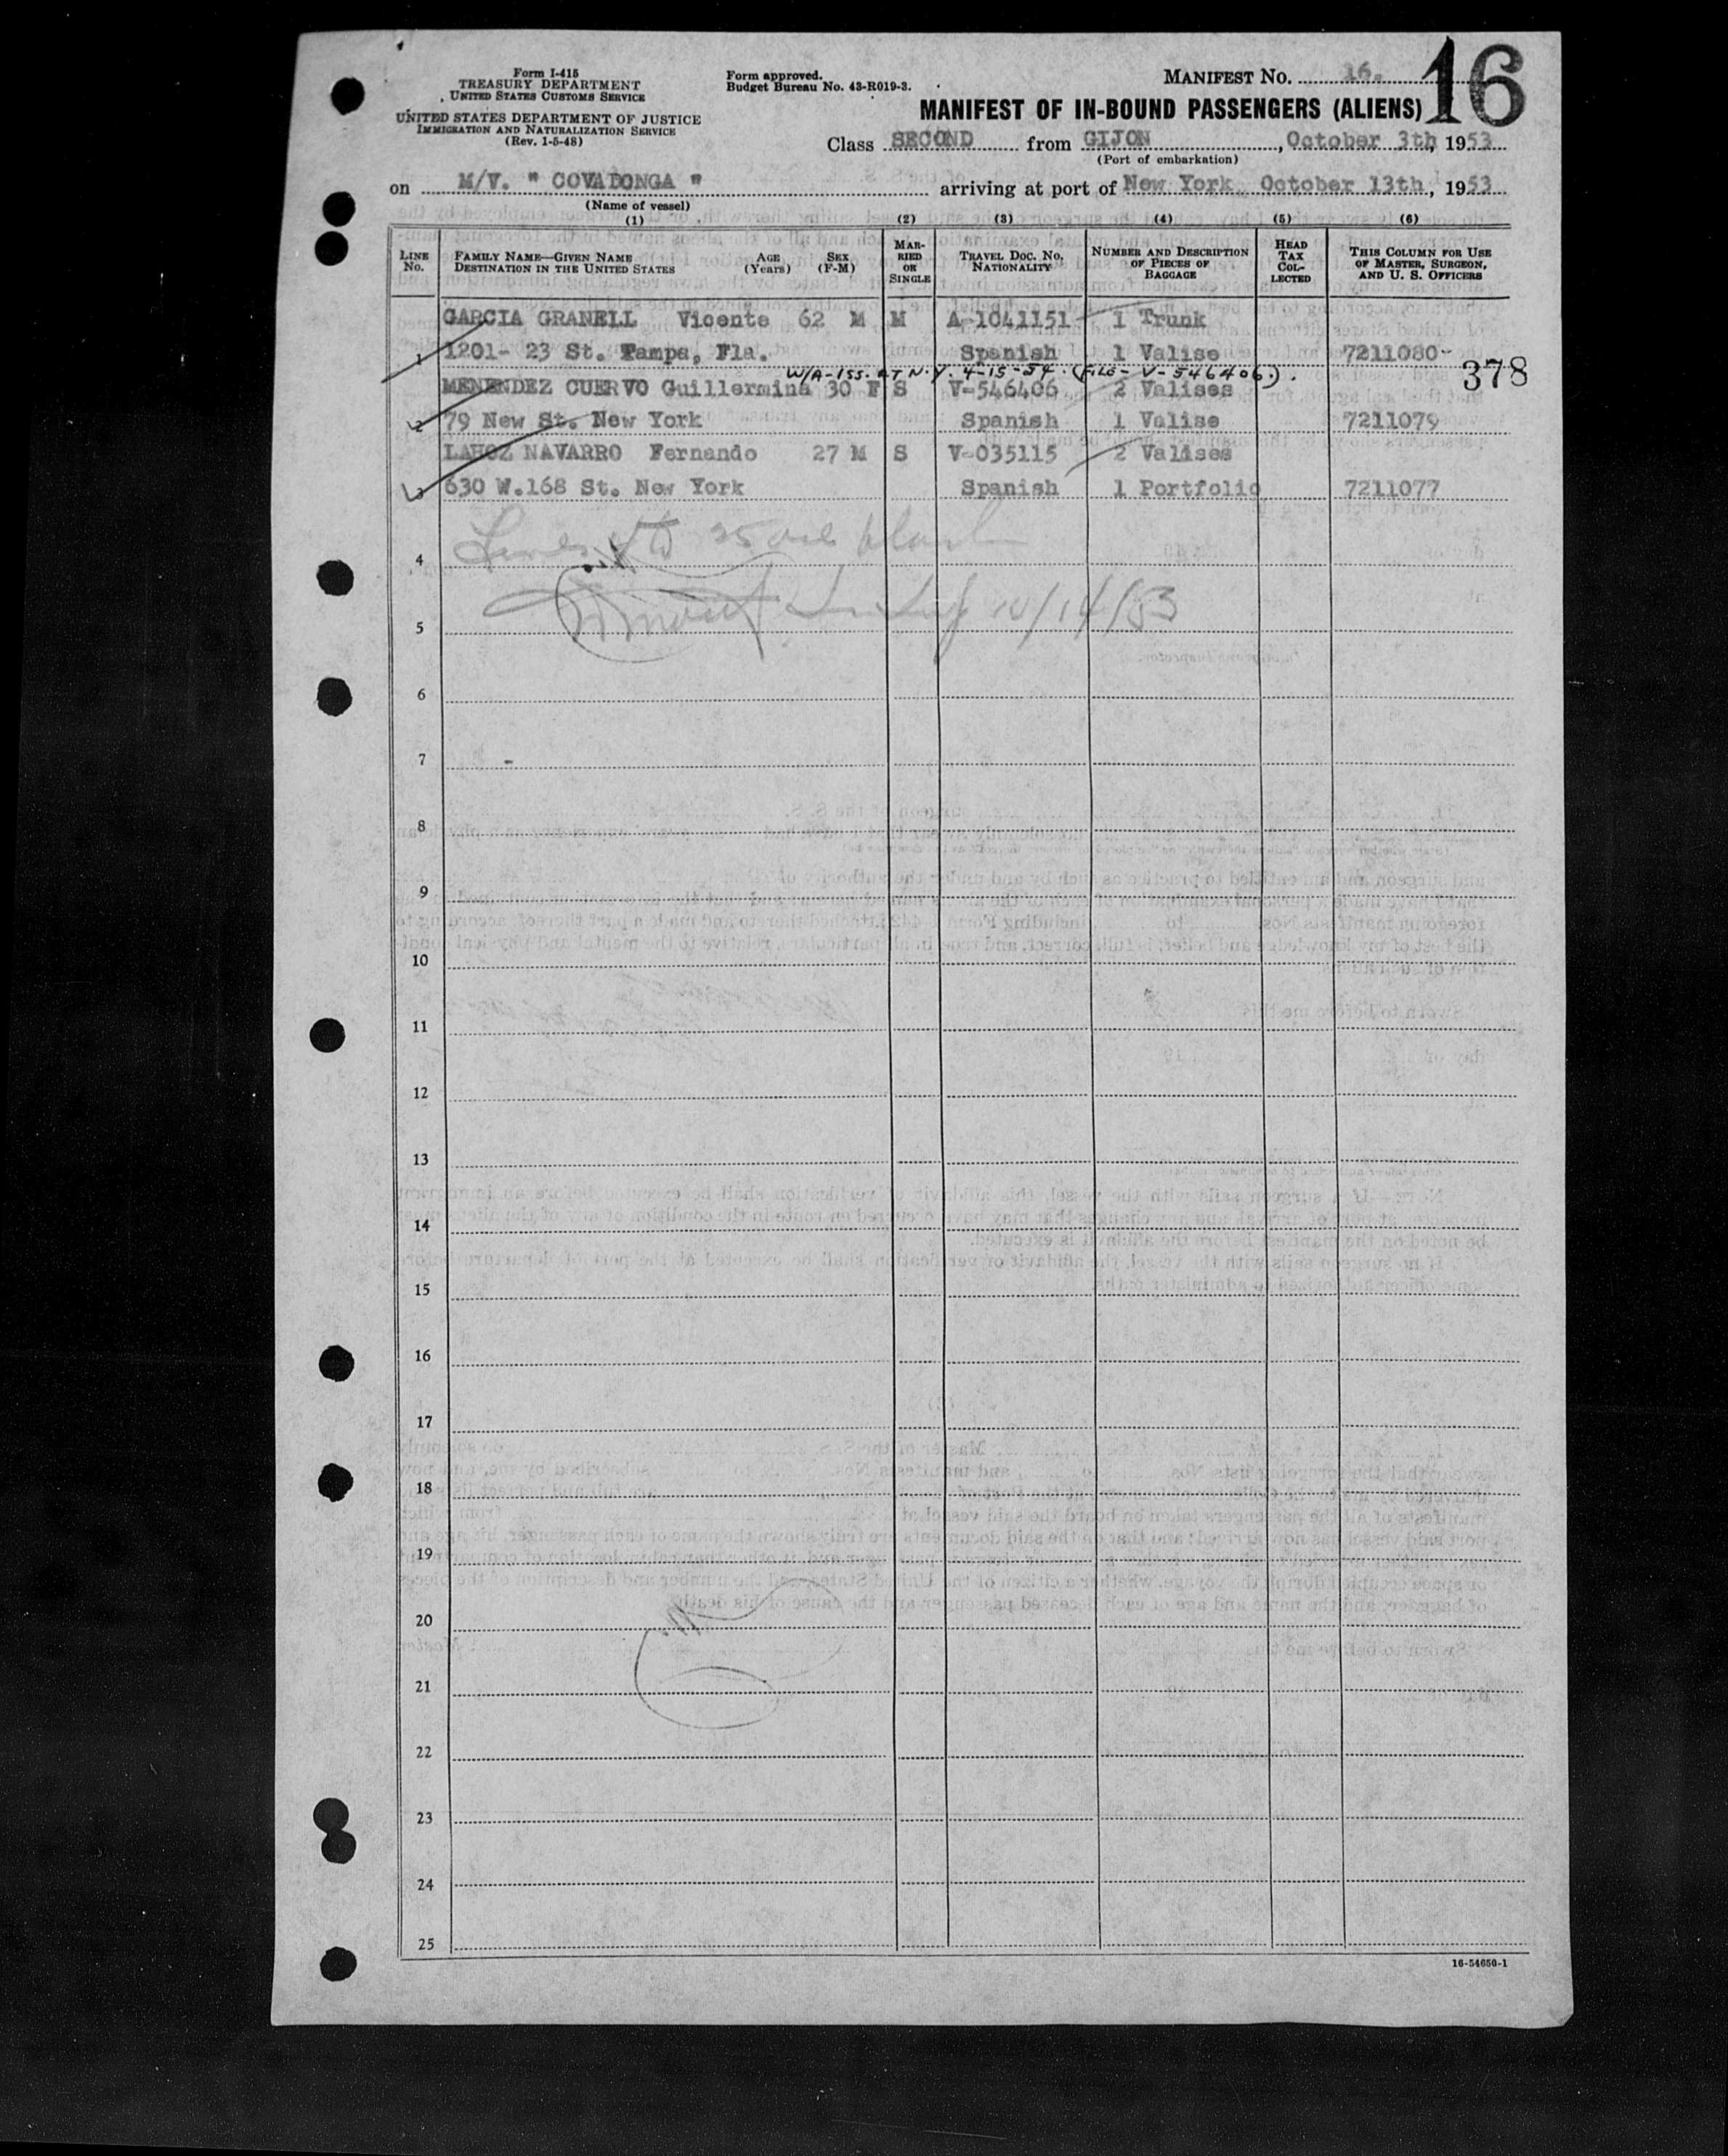 Form I-415
TREASURY DEPARTMENT
UNITED STATES CUSTOMS SERVICE
UNITED STATES DEPARTMENT OF JUSTICE
IMMIGRATION AND NATURALIZATION SERVICE
(Rev. 1-5-48)
Form approved.
Budget Bureau No. 43-R019-3.
MANIFEST NO. 16.
16
MANIFEST OF IN-BOUND PASSENGERS (ALIENS)
Class SECOND from GIJON, October 3th, 1953
(Port of embarkation)
on M/V. " COVADONGA " arriving at port of New York October 13th, 1953
(Name of vessel)
(1) (2) (3) (4) (5) (6)
LINE NO.
FAMILY NAME—GIVEN NAME
DESTINATION IN THE UNITED STATES
AGE (Years)
SEX (F-M)
MARRIED OR SINGLE
TRAVEL DOC. NO. NATIONALITY
NUMBER AND DESCRIPTION OF PIECES OF BAGGAGE
HEAD TAX COLLECTED
THIS COLUMN FOR USE OF MASTER, SURGEON, AND U. S. OFFICERS
GARCIA GRANELL Vicente 62 M M A-1041151 1 Trunk
1 1201- 23 St. Tampa, Fla. Spanish 1 Valise 7211080-
W/A-ISS. AT N.Y. 4-15-54. (FILE- V-546406.).
378
MENENDEZ CUERVO Guillermina 30 F S V-546406 2 Valises
2 79 New St. New York Spanish 1 Valise 7211079
LAHOZ NAVARRO Fernando 27 M S V-035115 2 Valises
3 630 W.168 St. New York Spanish 1 Portfolio 7211077
Lines 4 to 25 are blank
4
10/14/53
5
6
7
8
9
10
11
12
13
14
15
16
17
18
19
20
21
22
23
24
25
16-54650-1